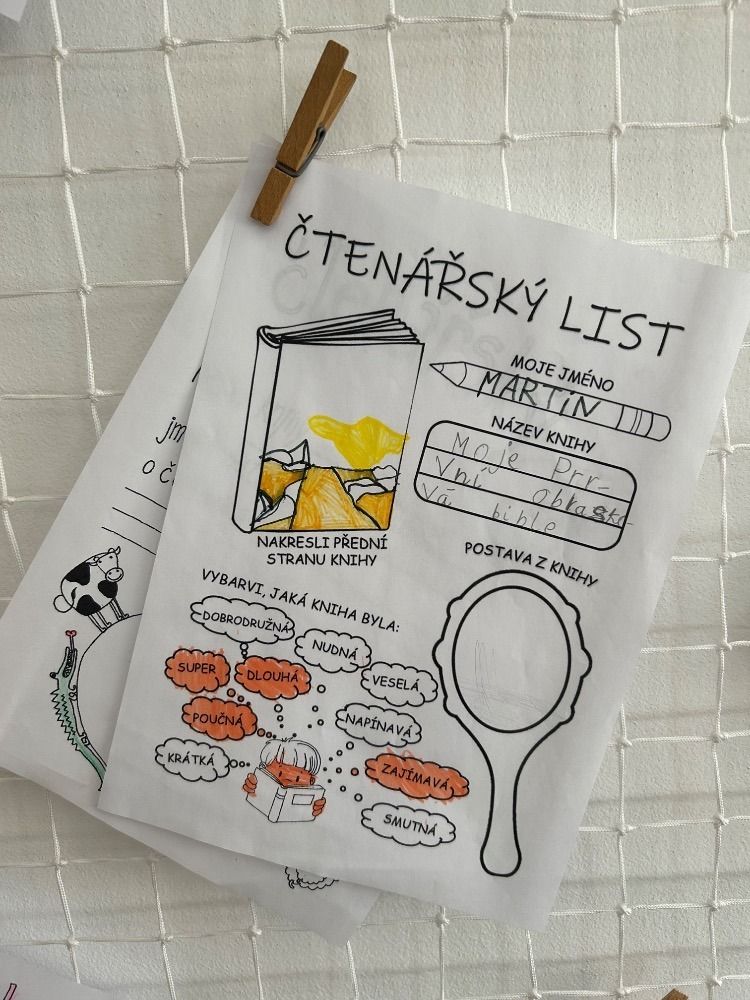 ČTENÁŘSKÝ LIST
MOJE JMÉNO
MARTiN
NÁZEV KNIHY
Moje Prr-
Vní obrasko
Vá bible
NAKRESLI PŘEDNÍ
STRANU KNIHY
POSTAVA Z KNIHY
VYBARVI, JAKÁ KNIHA BYLA:
DOBRODRUŽNÁ
NUDNÁ
SUPER
DLOUHÁ
VESELÁ
POUČNÁ
NAPÍNAVÁ
KRÁTKÁ
ZAJÍMAVÁ
SMUTNÁ
o č